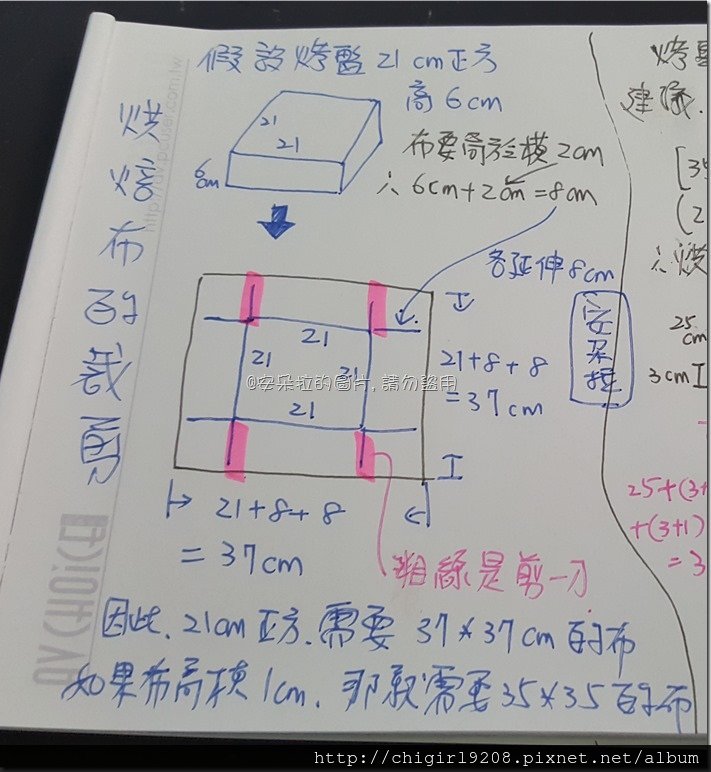 烘焙布的裁開
假設烤盤21cm正方
高6cm
21
21
6cm
布要高於模2cm
∴ 6cm+2cm=8cm
各延伸8cm
21
21
21
21
21+8+8
=37cm
21+8+8
=37cm
粗線是剪一刀
因此.21cm正方.需要 37*37cm的布
如果布高模1cm.那就需要35*35的布
安朵拉
@安朵拉的圖片,請勿盜用
烤
建議.
[35
(2
∴烘
25
cm
3cm
25+(3+
+(3+1)
=3
http://chigirl9208.pixnet.net/album